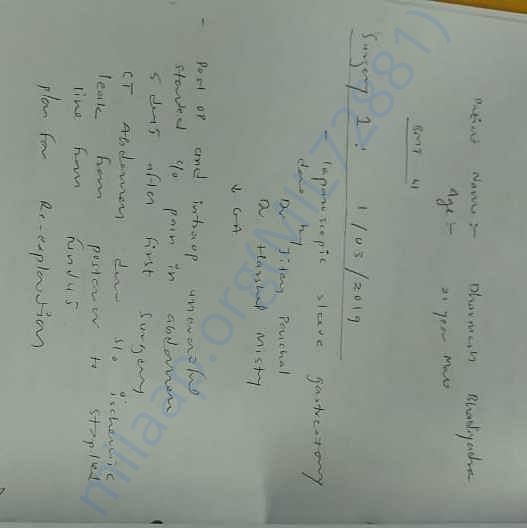 Patient Name :- Dharmesh Bhadiyadra
Age :- 21 year Male
BMI 41
Surgery 1 : 1/03/2019
- laparoscopic sleeve gastrectomy
done by Dr Jiten Panchal
Dr Harshal Mistry
↓ GA
- Post OP and intraop uneventful
started c/o pain in abdomen
5 days after first surgery
CT Abdomen done s/o ischemic
leak from posterior to stapled
line from fundus
plan for Re-exploration
milaap.org(MILC72881)